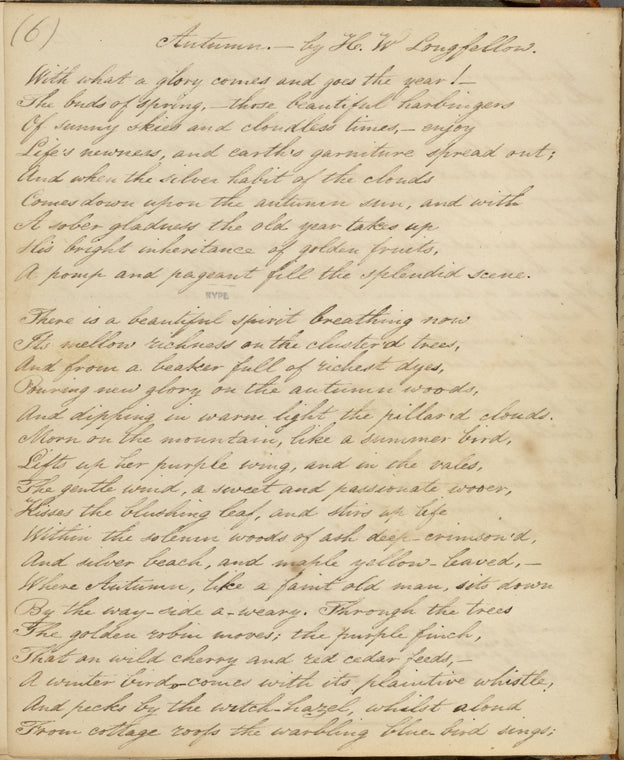 (6)
Autumn. — by H. W Longfellow.
With what a glory comes and goes the year! —
The buds of spring, — those beautiful harbingers
Of sunny skies and cloudless times, — enjoy
Life's newness, and earth's garniture spread out;
And when the silver habit of the clouds
Comes down upon the autumn sun, and with
A sober gladness the old year takes up
His bright inheritance of golden fruits,
A pomp and pageant fill the splendid scene.
NYPL
There is a beautiful spirit breathing now
Its mellow richness on the cluster'd trees,
And from a beaker full of richest dyes,
Pouring new glory on the autumn woods,
And dipping in warm light the pillar'd clouds.
Morn on the mountain, like a summer bird,
Lifts up her purple wing, and in the vales,
The gentle wind, a sweet and passionate wooer,
Kisses the blushing leaf, and stirs up life
Within the solemn woods of ash deep-crimson'd,
And silver beach, and maple yellow-leaved, —
Where Autumn, like a faint old man, sits down
By the way-side a-weary. Through the trees
The golden robin moves; the purple finch,
That on wild cherry and red cedar feeds, —
A winter bird, comes with its plaintive whistle,
And pecks by the witch-hazel, whilst aloud
From cottage roofs the warbling blue-bird sings;